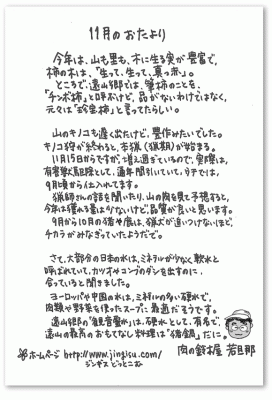 11月のおたより
今年は、山も里も、木に生る実が豊富で、
柿の木は、「生って、生って、真っ赤」。
ところで、遠山郷では、筆柿のことを、
「チンポ柿」と呼ぶけど、品がないわけではなく、
元々は「珍宝柿」と言ってたらしい。
山のキノコも遅く出たけど、豊作みたいでした。
キノコ狩が終わると、本猟(猟期)が始まる。
11月15日からですが、増え過ぎているので、実際は、
有害獣駆除として、通年間引いていて、ウチでは、
9月頃から仕入れてます。
猟師さんの話を聞いたり、山の肉を見て予想すると、
今年は獲れる量は少ないけど、品質が良いと思います。
9月から10月の猪や鹿は、猟犬が追いつけないほど、
チカラがみなぎっていたようだで。
さて、大部分の日本の水は、ミネラルが少なく軟水と
呼ばれていて、カツオやコンブのダシを出すのに、
合っていると聞きました。
ヨーロッパや中国の水は、ミネラルの多い硬水で、
肉類や野菜を使ったスープに最適だそうです。
遠山郷の「観音霊水」は、硬水として、有名で、
遠山の最高のおもてなし料理は「猪鍋」だに。
ホームページ http://www.jingisu.com/
ジンギス どっとこむ
肉の鈴木屋 若旦那